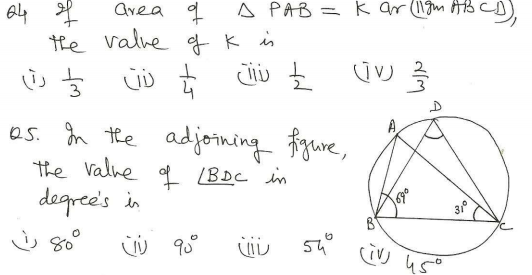 Q4 If area of Δ PAB = K ar (||gm ABCD),
the value of K is
(i) 1/3 (ii) 1/4 (iii) 1/2 (iv) 2/3
Q5. In the adjoining figure,
the value of ∠BDC in
degree's is
(i) 80° (ii) 90° (iii) 54° (iv) 45°
D
A
69°
31°
B
C